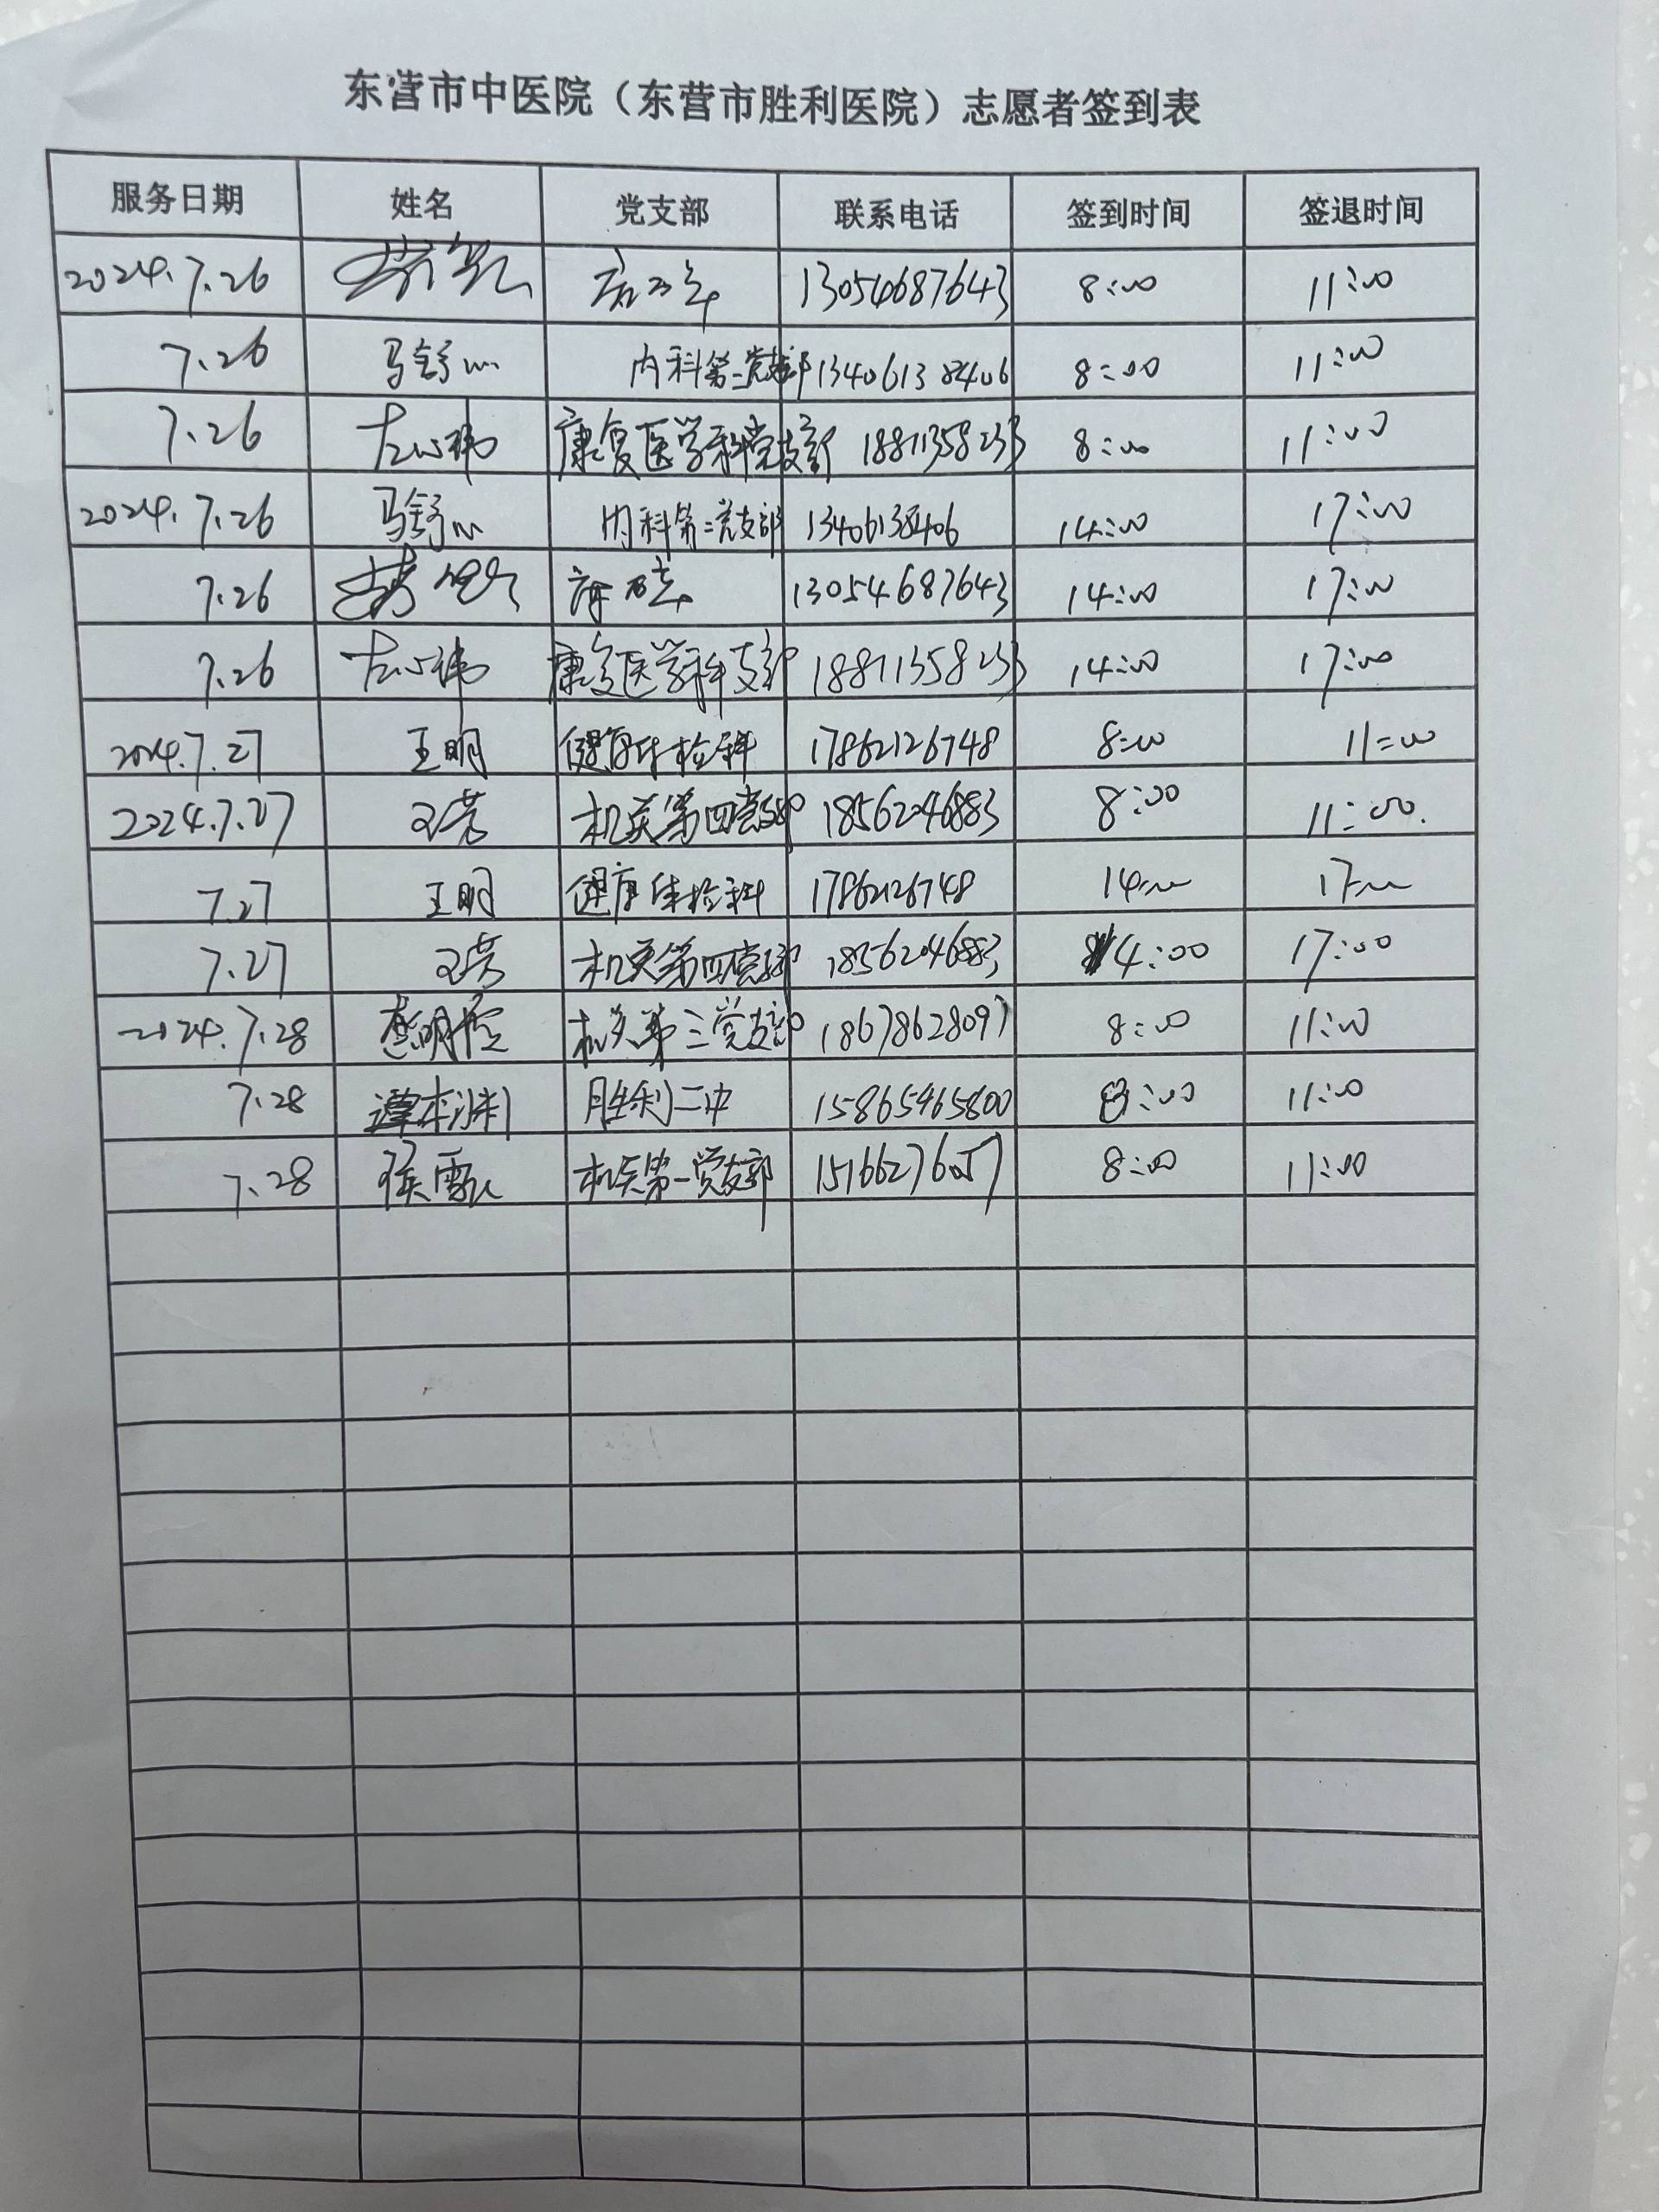 东营市中医院（东营市胜利医院）志愿者签到表
服务日期 姓名 党支部 联系电话 签到时间 签退时间
2024.7.26 13054687643 8:00 11:00
7.26 马舒心 内科第二党支部 13406138406 8:00 11:00
7.26 左心祎 康复医学科党支部 18811358233 8:00 11:00
2024.7.26 马舒心 内科第二党支部 13406138406 14:00 17:00
7.26 13054687643 14:00 17:00
7.26 左心祎 康复医学科支部 18811358233 14:00 17:00
2024.7.27 王明 健康体检科 17862126748 8:00 11:00
2024.7.27 机关第四党支部 18562046883 8:00 11:00.
7.27 王明 健康体检科 17862126748 14:00 17:00
7.27 机关第四党支部 18562046883 14:00 17:00
2024.7.28 机关第三党支部 18678628097 8:00 11:00
7.28 谭本渊 胜利二中 15865465800 8:00 11:00
7.28 机关第一党支部 8:00 11:00